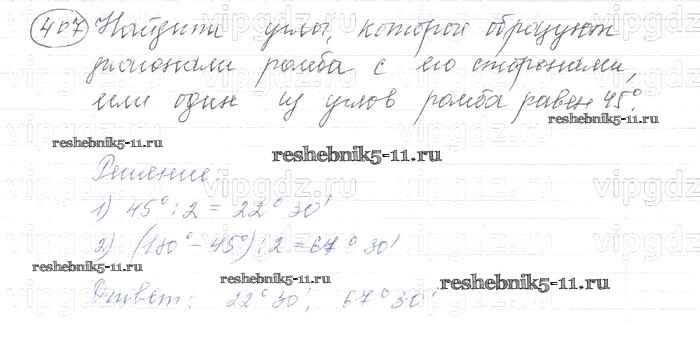 407 Найдити углы, которой образуют
диагонали ромба с его сторонами,
если один из углов ромба равен 45°.
reshebnik5-11.ru
reshebnik5-11.ru
reshebnik5-11.ru
Решение:
vipgdz.ru
1) 45° : 2 = 22° 30'
2) (180° - 45°) : 2 = 67° 30'
reshebnik5-11.ru
reshebnik5-11.ru
reshebnik5-11.ru
Ответ: 22° 30'; 67° 30'.